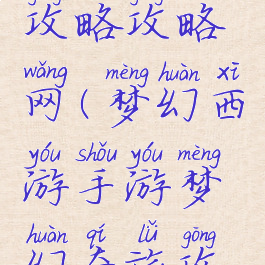 攻略攻略
wǎng mèng huàn xī
网(梦幻西
yóu shǒu yóu mèng
游手游梦
huàn qí lǚ gōng